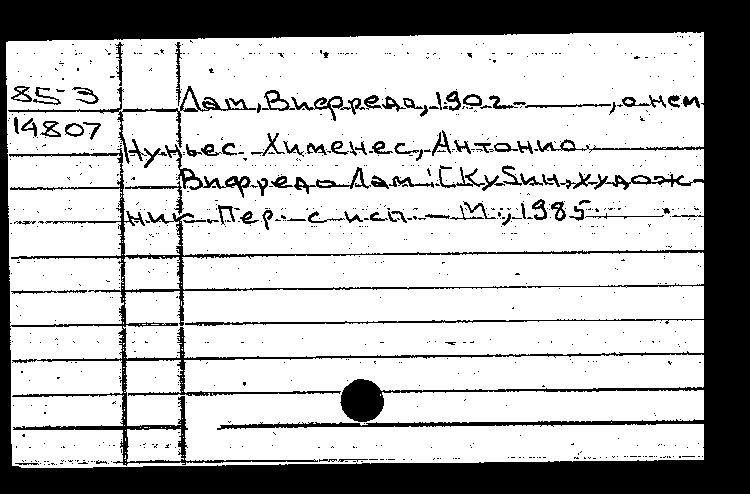 85-3
Лам, Вифредо, 1902 - , о нем
14807
Нуньес Хименес, Антонио
Вифредо Лам : [Кубин. худож-
ник. Пер. с исп. - М., 1985.